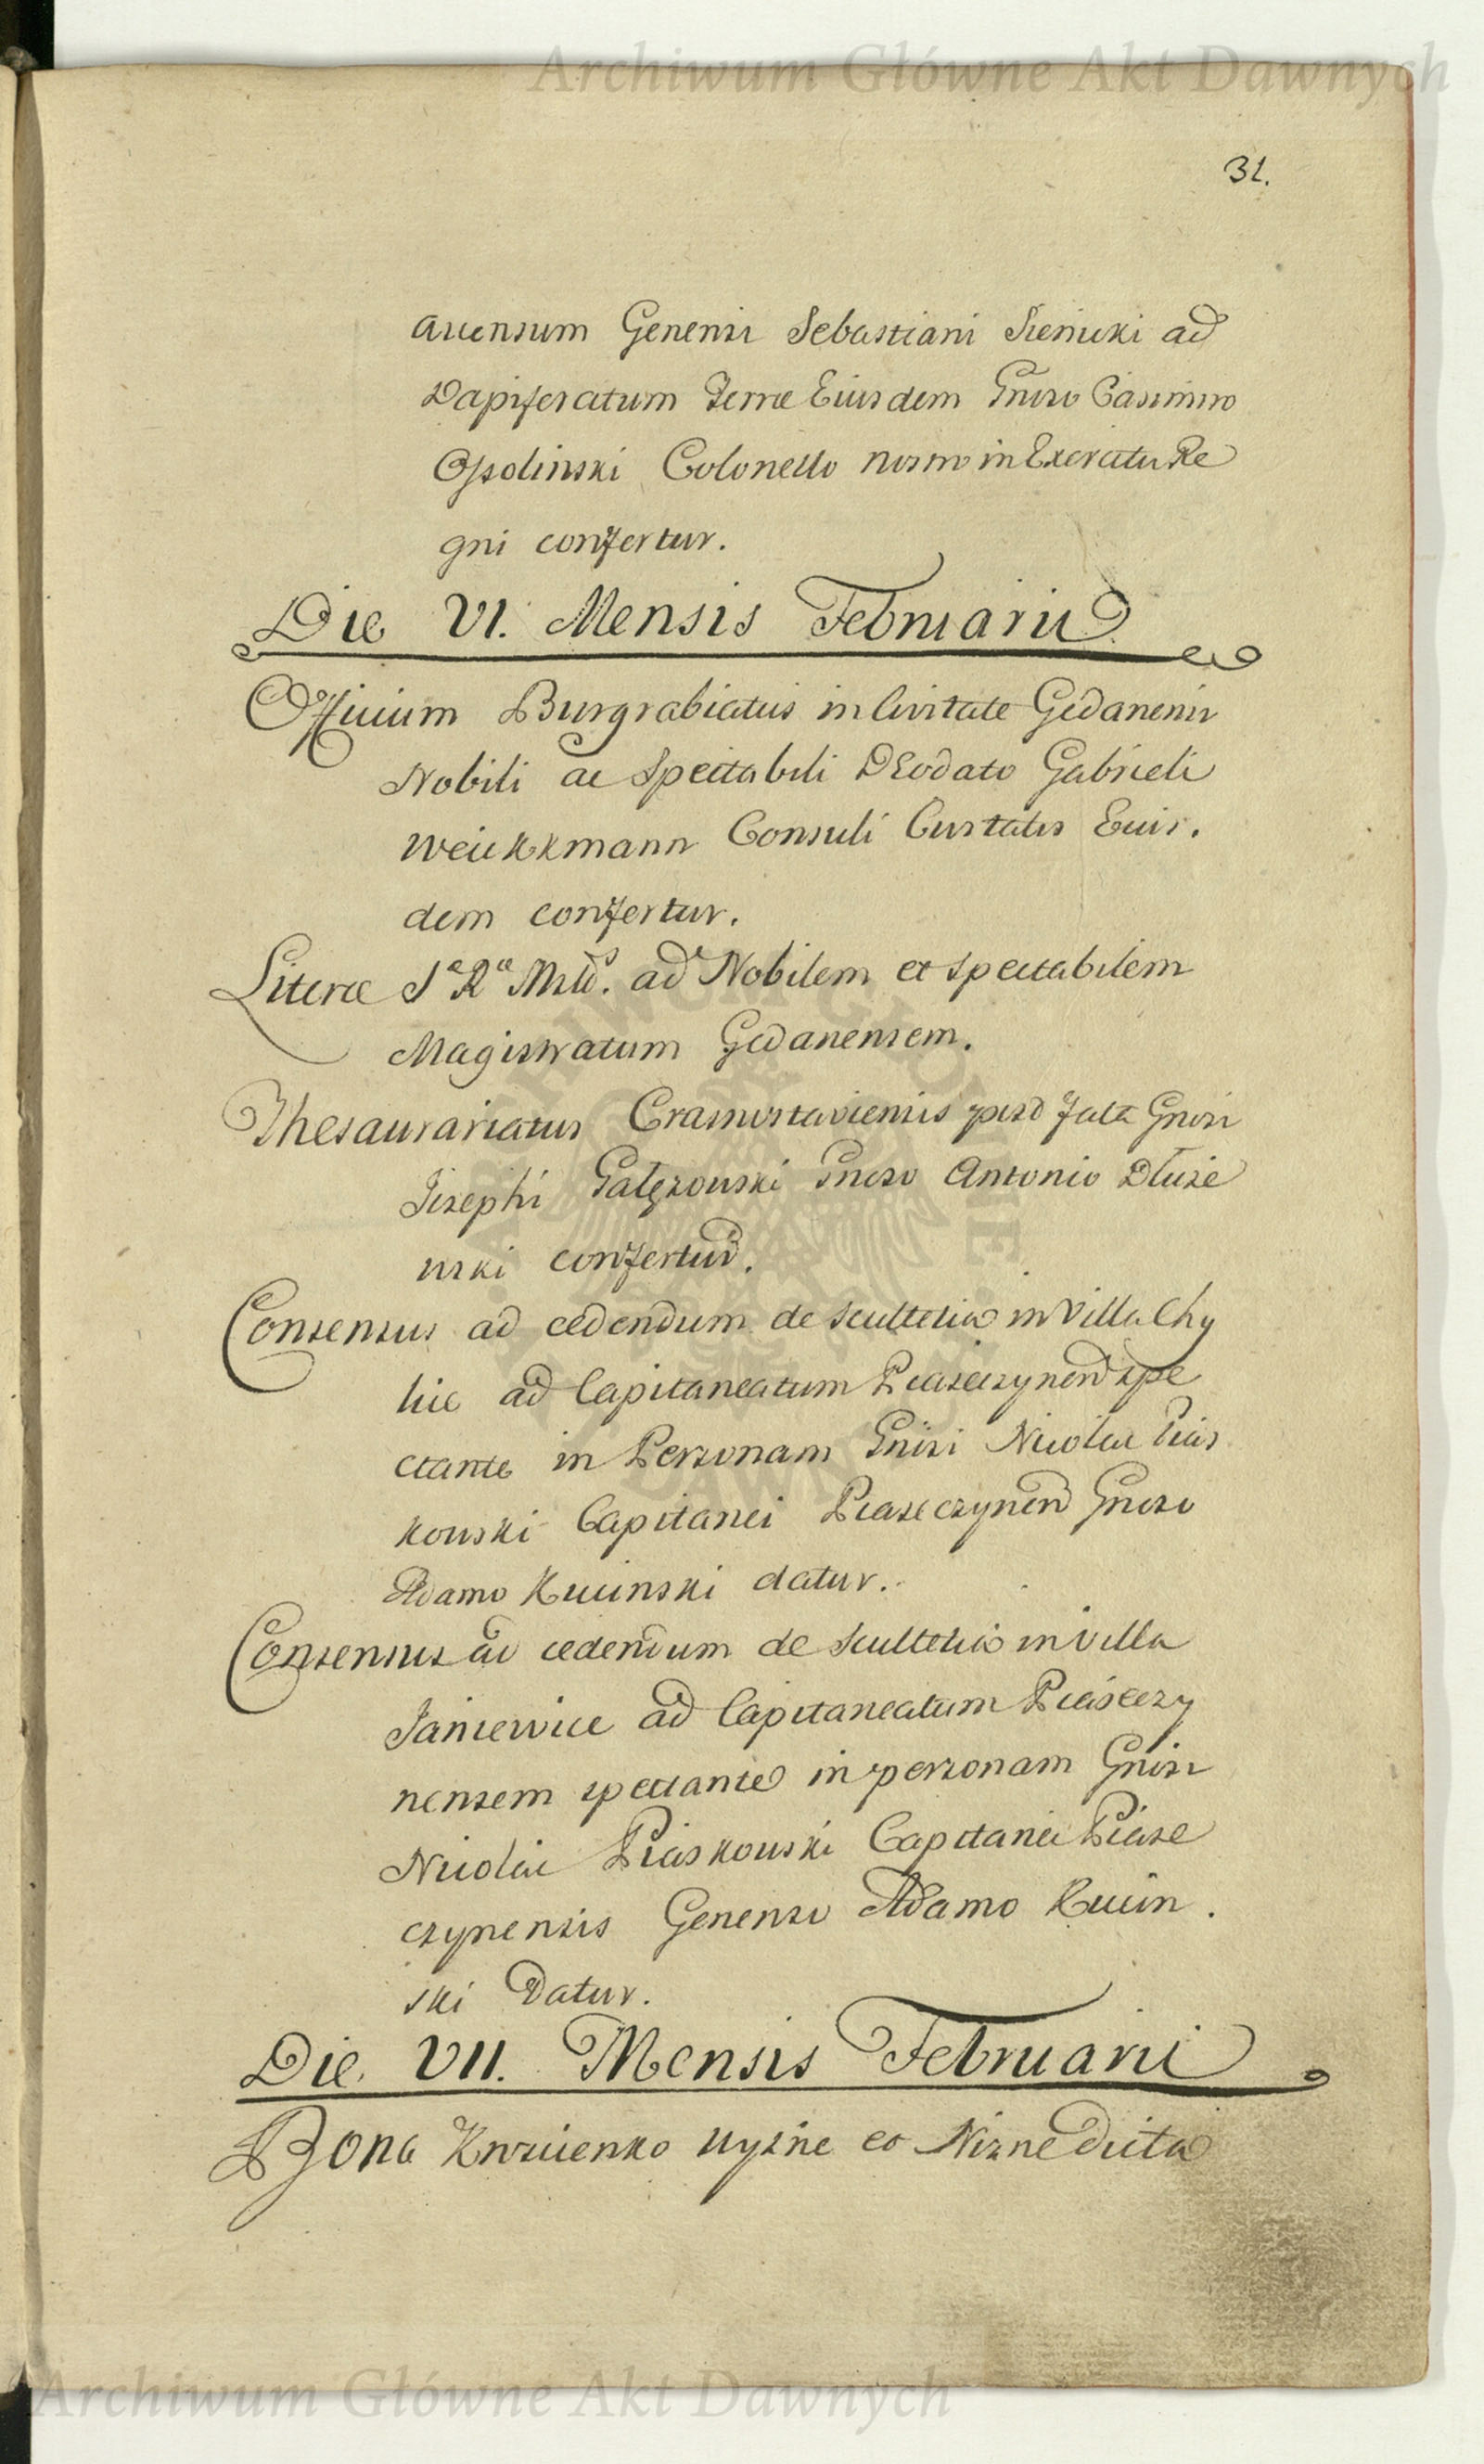 Archiwum Główne Akt Dawnych
31.
accensum Generosi Sebastiani Sienicki ad
Dapiferatum Terræ Eiusdem Gnoso Casimiro
Ossolinski Colonello nostro in Exercitu Re
gni confertur.
Die VI. Mensis Februarii
Officium Burgrabiatus in Civitate Gedanensi
Nobili ac Spectabili Deodato Gabrieli
Weickkmann Consuli Civitatis Euis.
dem confertur.
Literæ S.ª R.ª Mttis. ad Nobilem et Spectabilem
Magistratum Gedanensem.
Thesaurariatus Crasnostaviensis post fata Gnosi
Josephi Gałęzowski Gnoso Antonio Dłuże
wski confertur.
Consensus ad cedendum de Scultetia in Villa Chy
lice ad Capitaneatum Piaseczynen spe
ctante in Personam Gnosi Nicolai Pias
kowski Capitanei Piaseczynen Gnoso
Adamo Kucinski datur.
Consensus ad cedendum de Scultetia in Villa
Janiewice ad Capitaneatum Piaseczy
nensem spectante in personam Gnosi
Nicolai Piaskowski Capitanei Piase
czynensis Generoso Adamo Kucin.
ski Datur.
Die VII. Mensis Februarii
Bona Wyżne et Niżne Dicta
Archiwum Główne Akt Dawnych